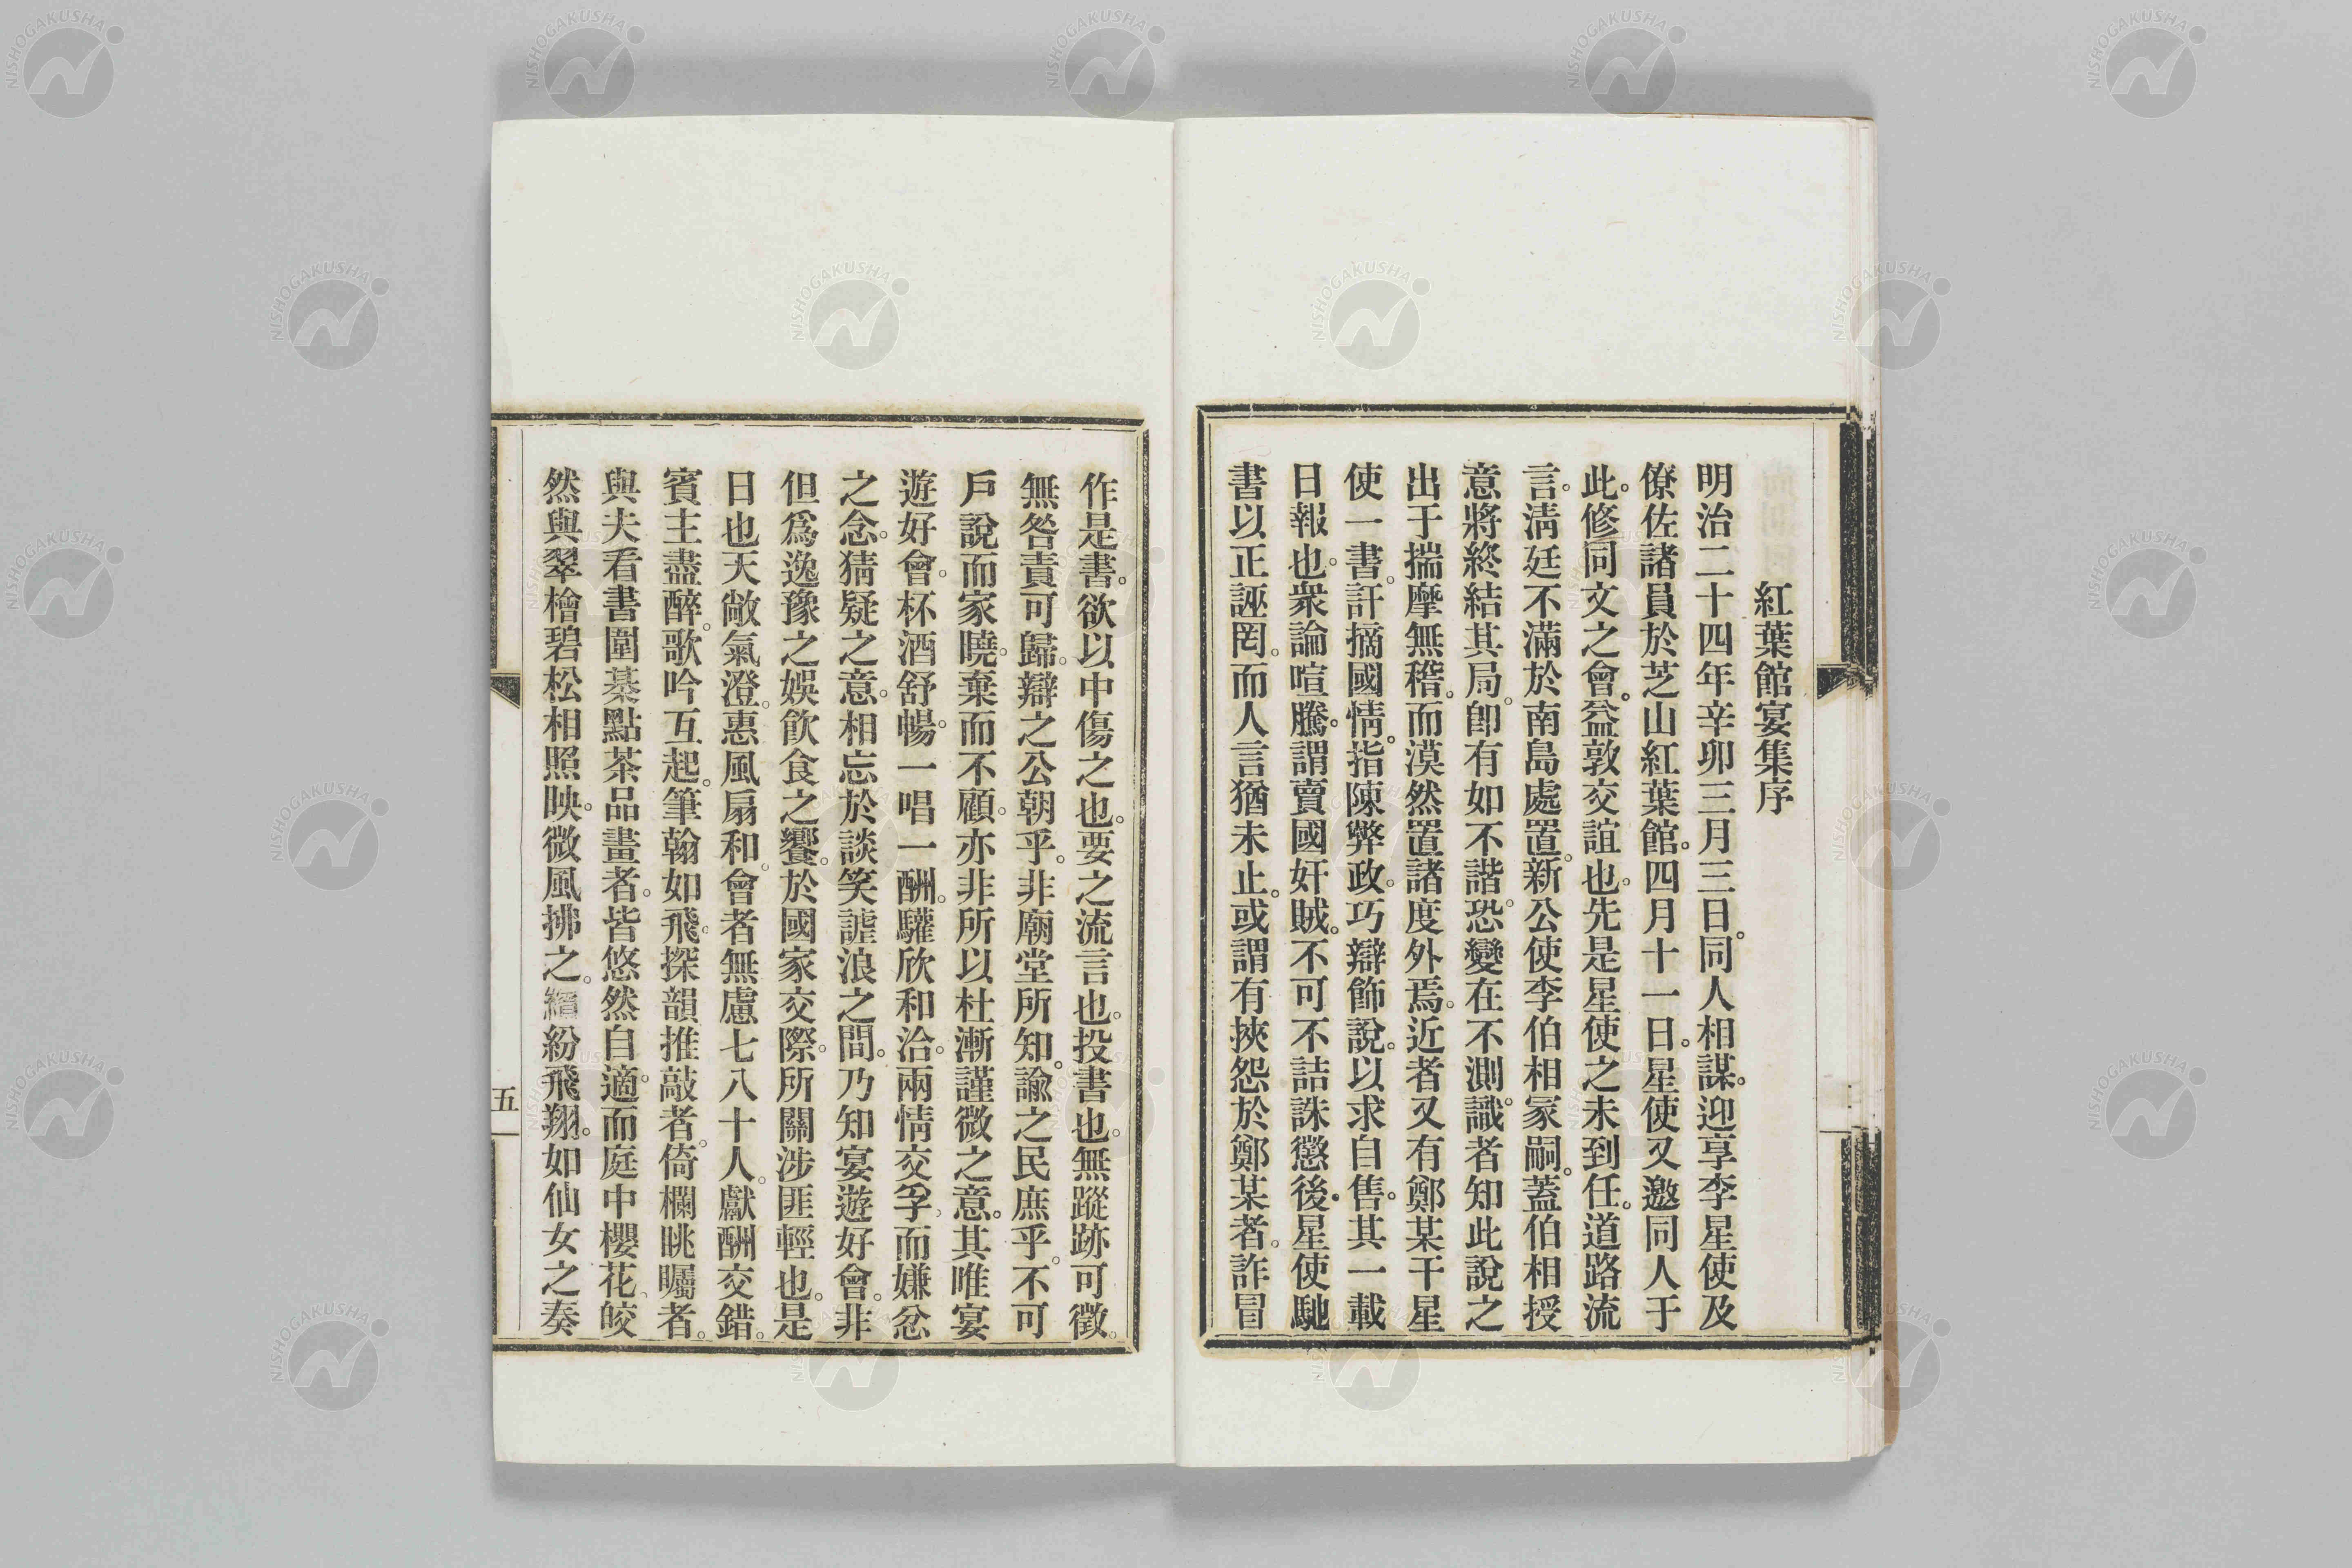 紅葉館宴集序
明治二十四年辛卯三月三日。同人相謀。迎享李星使及
僚佐諸員於芝山紅葉館。四月十一日。星使又邀同人于
此。修同文之會。益敦交誼也。先是星使之未到任。道路流
言。淸廷不滿於南島處置。新公使李伯相冢嗣。蓋伯相授
意將終結其局。卽有如不諧。恐變在不測。識者知此說之
出于揣摩無稽。而漠然置諸度外焉。近者又有鄭某干星
使一書。訐摘國情。指陳弊政。巧辯飾說。以求自售。其一載
日報也。衆論喧騰。謂賣國奸賊。不可不詰誅懲後。星使馳
書以正誣罔。而人言猶未止。或謂有挾怨於鄭某者。詐冒
作是書。欲以中傷之也。要之流言也。投書也。無蹤跡可徵。
無咎責可歸。辯之公朝乎。非廟堂所知。諭之民庶乎。不可
戶說而家曉。棄而不顧。亦非所以杜漸謹微之意。其唯宴
遊好會。杯酒舒暢。一唱一酬。驩欣和洽。兩情交孚。而嫌忿
之念。猜疑之意。相忘於談笑謔浪之間。乃知宴遊好會。非
但爲逸豫之娛飮食之饗。於國家交際。所關涉匪輕也。是
日也天敞氣澄。惠風扇和。會者無慮七八十人。獻酬交錯。
賓主盡醉。歌吟互起。筆翰如飛。探韻推敲者。倚欄眺矚者。
與夫看書圍棊點茶品畫者。皆悠然自適。而庭中櫻花。皎
然與翠檜碧松相照映。微風拂之。繽紛飛翔。如仙女之奏
五
NISHOGAKUSHA